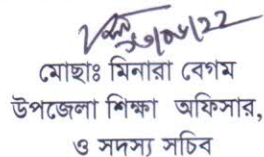 মোছাঃ মিনারা বেগম
উপজেলা শিক্ষা অফিসার,
ও সদস্য সচিব